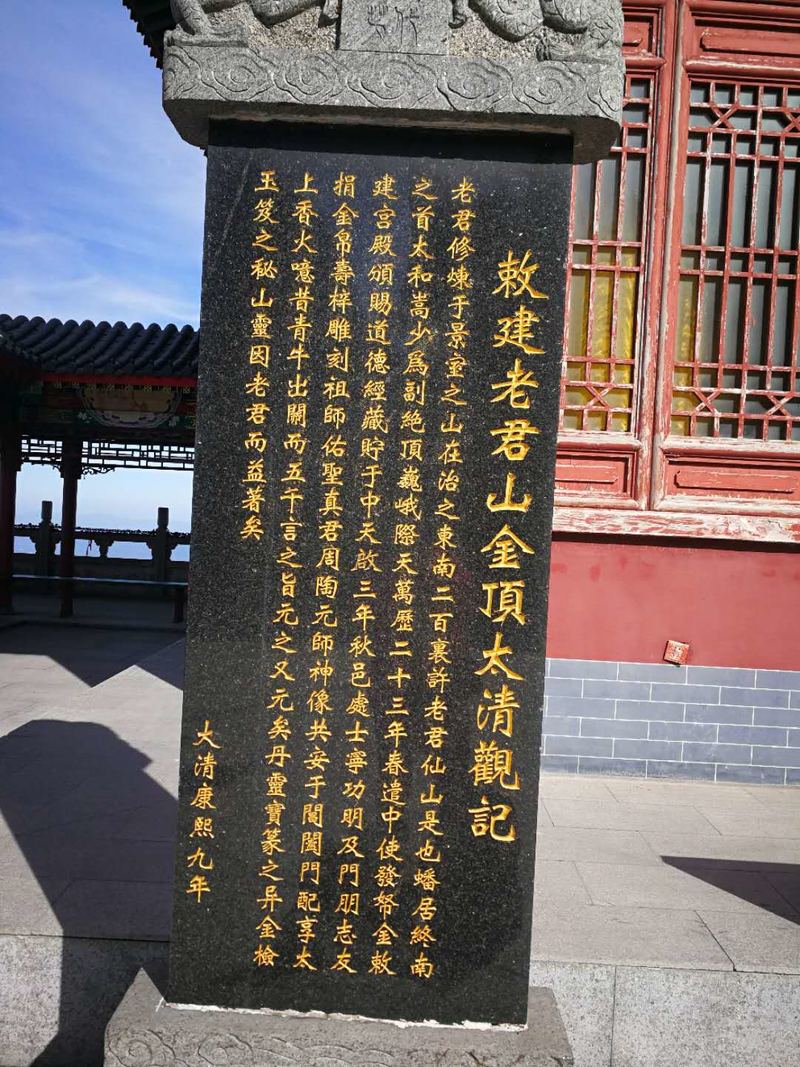 敕建老君山金頂太清觀記
老君修煉于景室之山在治之東南二百裏許老君仙山是也蟠居終南
之首太和嵩少爲副絶頂巍峨際天萬歷二十三年春遣中使發帑金敕
建宫殿頒賜道德經藏貯于中天啟三年秋邑處士寧功明及門朋志友
捐金帛壽梓雕刻祖師佑聖真君周陶元師神像共安于閶闔門配享太
上香火噫昔青牛出關而五千言之旨元之又元矣丹靈寶篆之异金檢
玉笈之秘山靈因老君而益著矣
大清康熙九年